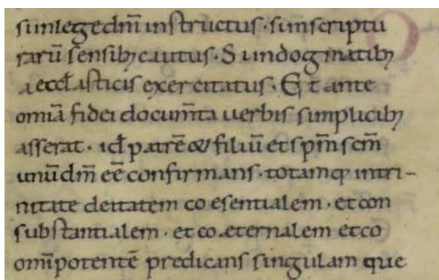 si in lege dn̄i instructus · si in scriptu
rarū sensibꝫ cautus · Si in dogmatibꝫ
aecclasticis exercitatus · Et ante
omīa fidei documta uerbis simplicibꝫ
asserat · id patrē & filiū et spm̄ scm̄
unū dm̄ eē confirmans · totamqꝫ in tri-
nitate deitatem co esentialem · et con
substantialem · et co eternalem et co
omīpotentē predicans singulam que